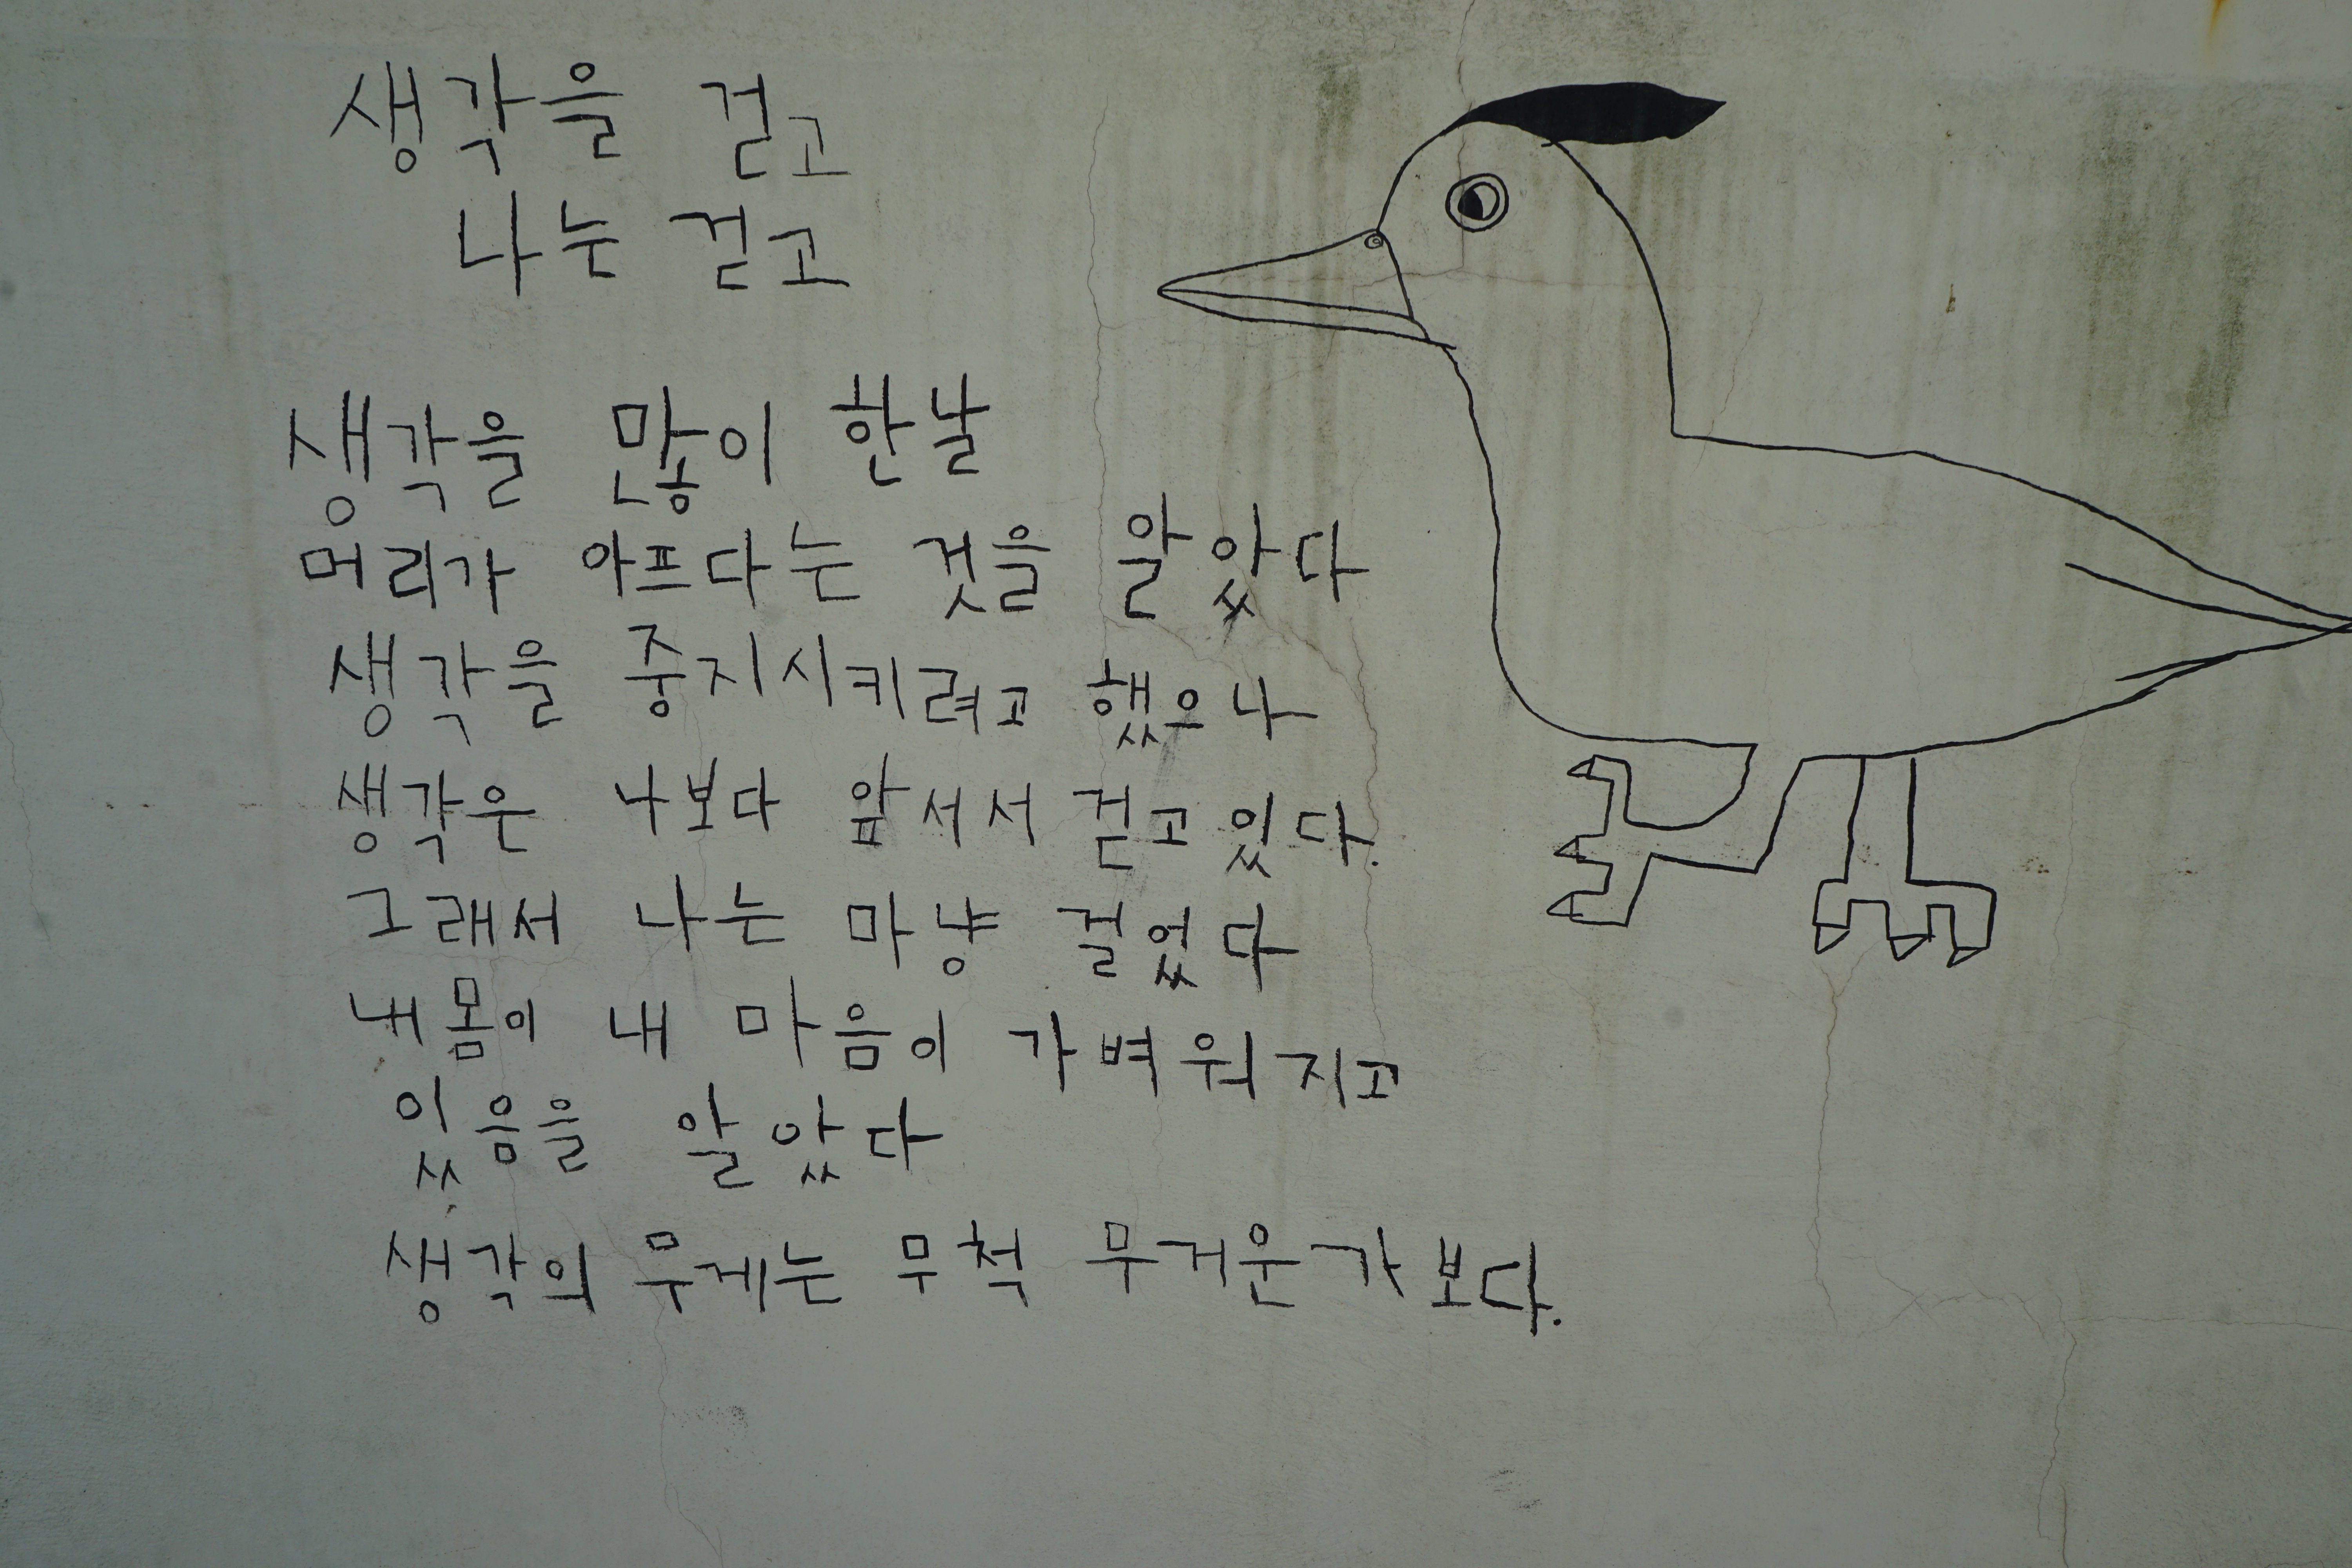 생각을 걷고
나눈 걷고
생각을 많이 한날
머리가 아프다는 것을 알았다
생각을 중지시키려고 했으나
생각은 나보다 앞서서 걷고 있다.
그래서 나는 마냥 걸었다
내몸이 내 마음이 가벼워지고
있음을 알았다
생각의 무게는 무척 무거운가 보다.